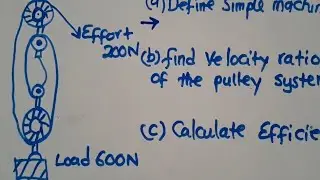 (a) Define Simple machin
Effort
200N
(b) find Velocity ratio
of the pulley system
(c) Calculate Efficie
Load 600N